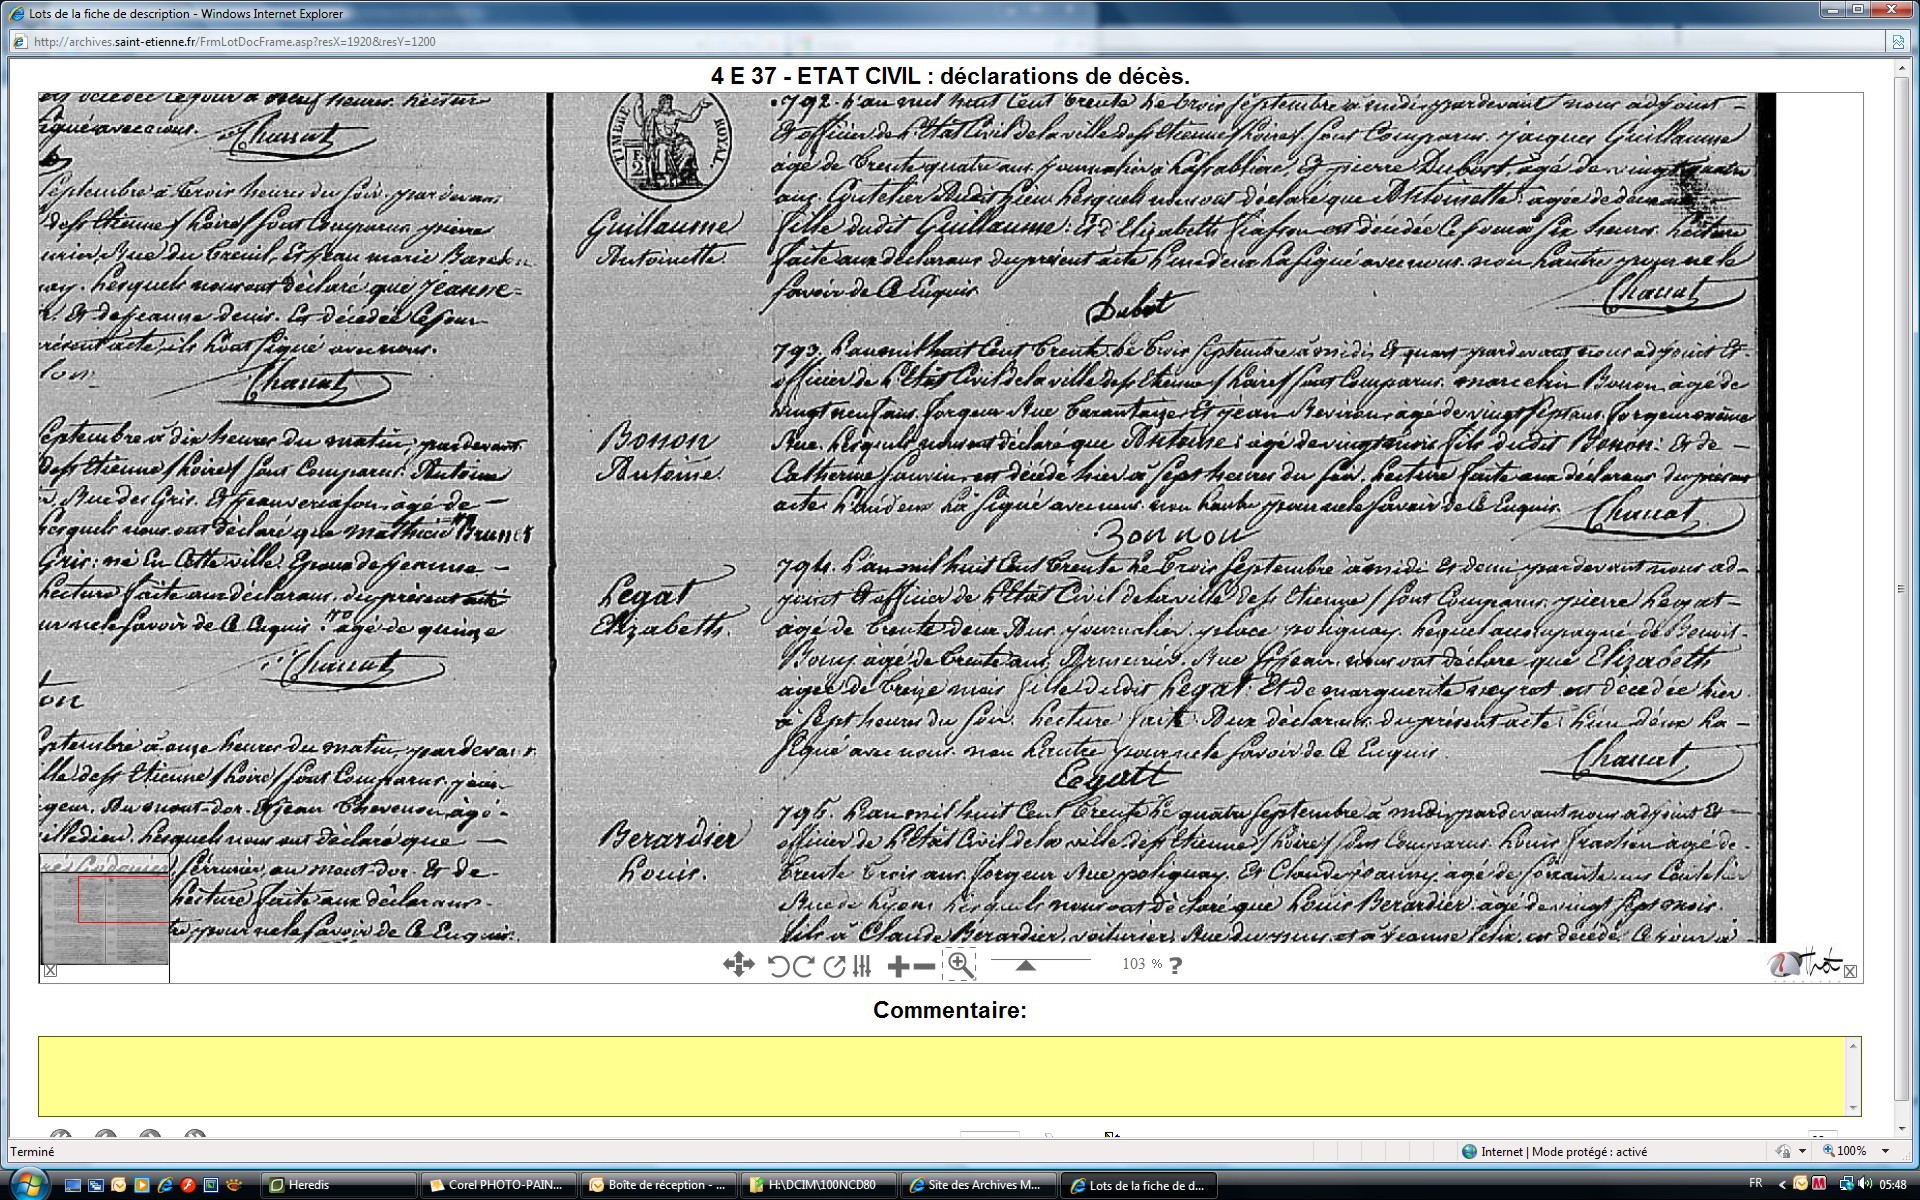 Lots de la fiche de description - Windows Internet Explorer
http://archives.saint-etienne.fr/FrmLotDocFrame.asp?resX=1920&resY=1200
4 E 37 - ETAT CIVIL : déclarations de décès.
est décédée ce jour à neuf heures. Lecture
signé avec nous. Chassat
Septembre à trois heures du soir, pardevant
de St Etienne /Loire/ sont comparus. pierre
Rue du Treuil, Et Jean marie
Lesquels nous ont déclaré que jeanne=
Et de jeanne denis. Est décédée Ce jour
présent acte, ils l'ont signé avec nous.
Chassat
Septembre à dix heures du matin, pardevant
de St Etienne /Loire/ sont Comparus. Antoine
Rue des Gris. Et âgé de —
Lesquels nous ont déclaré que mathieu Brunet
Gris: né En Cette ville. Epoux de jeanne —
Lecture faite aux déclarans. du présent acte
pour ne le savoir de Ce Enquis. agé de quinze
Chassat
ton
Septembre à onze heures du matin pardevant
ville de St Etienne /Loire/ sont Comparus. jean
Au mont-dor. Et jean Thevenon âgé-
Lesquels nous ont déclaré que —
Serrurier, au mont-dor. Et de-
Lecture faite aux déclarans-
pour ne le savoir de Ce Enquis.
TIMBRE ROYAL.
Guillaume
Antoinette.
.792. L'an mil huit Cent trente Le trois septembre à midi, pardevant nous adjoint —
Et officier de L'Etat Civil de la ville de St Etienne /Loire/ sont Comparus. jacques Guillaume
âgé de trente quatre ans. journalier à Et pierre Dubost, âgé de vingt quatre
ans. Coutelier Audit Lieu. Lesquels nous ont déclaré que Antoinette: agée de
fille dudit Guillaume: Et d'Elizabeth est décédée Ce jour à six heures. Lecture
faite aux déclarans du présent acte L'un deux L'a signé avec nous. non L'autre pour ne le
savoir de Ce Enquis.
Dubost Chassat
Bonon
Antoine.
793. L'an mil huit Cent trente. Le trois septembre à midi Et quart pardevant nous adjoint Et-
officier de L'Etat Civil de la ville de St Etienne /Loire/ sont Comparus. marcelin Bonon, âgé de
vingt neuf ans. forgeur Rue tarantaize Et jean âgé de vingt sept ans. forgeur même
Rue. Lesquels nous ont déclaré que Antoine: âgé de vingt mois fils dudit Bonon: Et de —
Catherine est décédé hier à sept heures du soir. Lecture faite aux déclarans du présent
acte. L'un deux L'a signé avec nous. non L'autre pour ne le savoir de Ce Enquis.
Bonnon Chassat
Legat
Elizabeth.
794. L'an mil huit Cent trente Le trois septembre à midi Et demi pardevant nous ad-
joint Et officier de L'Etat Civil de la ville de St Etienne / sont Comparus. pierre Legat-
âgé de trente deux Ans. journalier. place polignay. Lequel accompagné de Benoit-
âgé de trente ans. Armurier. Rue St jean. nous ont déclaré que Elizabeth
agée de treize mois fille dudit Legat: Et de marguerite neyret est décédée hier
à sept heures du soir. Lecture faite Aux déclarans du présent acte: L'un deux L'a —
signé avec nous. non L'autre pour ne le savoir de Ce Enquis.
Legatt Chassat
Berardier
Louis.
795. L'an mil huit Cent trente Le quatre septembre à midi, pardevant nous adjoint Et —
officier de L'Etat Civil de la ville de St Etienne /Loire/ sont Comparus. Louis âgé de-
trente trois ans. forgeur Rue polignay. Et Claude âgé de soixante ans Coutelier
Rue de Lyon. Lesquels nous ont déclaré que Louis Berardier âgé de vingt sept mois.
fils à Claude Berardier, voiturier, Rue du Et à jeanne est décédé. Ce jour à
103 % ?
Commentaire:
Terminé
Internet | Mode protégé : activé
100%
Heredis
Corel PHOTO-PAIN...
Boîte de réception - ...
H:\DCIM\100NCD80
Site des Archives M...
Lots de la fiche de d...
FR
05:48